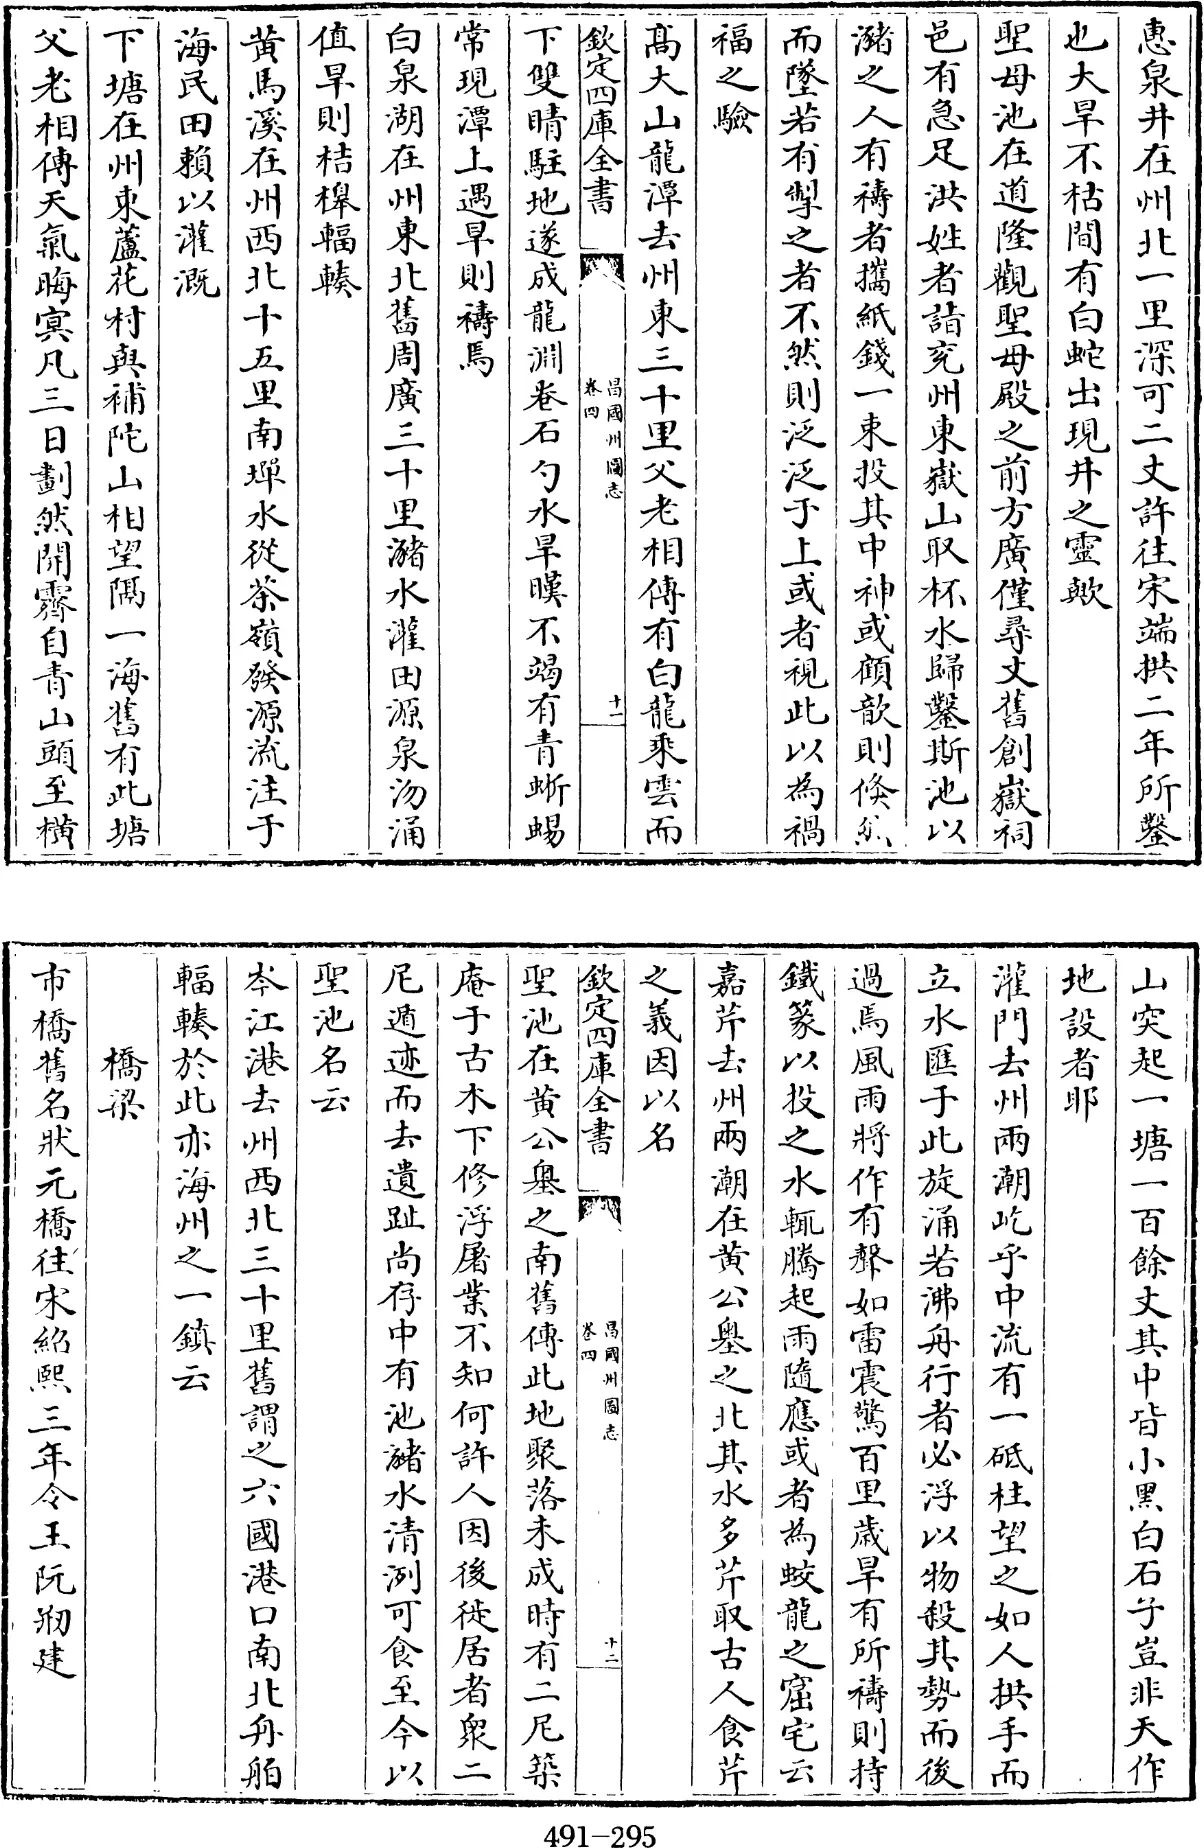 惠泉井在州北一里深可二丈許往宋端拱二年所鑿
也大旱不枯間有白蛇出現井之靈歟
聖母池在道隆觀聖母殿之前方廣僅尋丈舊創嶽祠
邑有急足洪姓者詣兖州東嶽山取杯水歸鑿斯池以
瀦之人有禱者攜紙錢一束投其中神或顧歆則倏然
而墜若有掣之者不然則泛泛于上或者視此以為禍
福之驗
髙大山龍潭去州東三十里父老相傳有白龍乘雲而
欽定四庫全書
昌國州圖志
卷四
十一
下雙睛駐地遂成龍淵卷石勺水旱暵不竭有青蜥蜴
常現潭上遇旱則禱焉
白泉湖在州東北舊周廣三十里瀦水灌田源泉沕涌
值旱則桔槔輻輳
黄馬溪在州西北十五里南墠水從茶嶺發源流注于
海民田賴以灌溉
下塘在州東蘆花村與補陀山相望隔一海舊有此塘
父老相傳天氣晦㝠凡三日劃然開霽自青山頭至横
山突起一塘一百餘丈其中皆小黑白石子豈非天作
地設者耶
灌門去州兩潮屹乎中流有一砥柱望之如人拱手而
立水匯于此旋涌若沸舟行者必浮以物殺其勢而後
過焉風雨將作有聲如雷震驚百里歲旱有所禱則持
鐵篆以投之水輒騰起雨隨應或者為蛟龍之窟宅云
嘉芹去州兩潮在黄公㠘之北其水多芹取古人食芹
之義因以名
欽定四庫全書
昌國州圖志
卷四
十二
聖池在黄公㠘之南舊傳此地聚落未成時有二尼築
庵于古木下修浮屠業不知何許人因後徙居者衆二
尼遁迹而去遺趾尚存中有池瀦水清洌可食至今以
聖池名云
岑江港去州西北三十里舊謂之六國港口南北舟舶
輻輳於此亦海州之一鎮云
橋梁
市橋舊名狀元橋往宋紹熙三年令王阮剏建
491-295